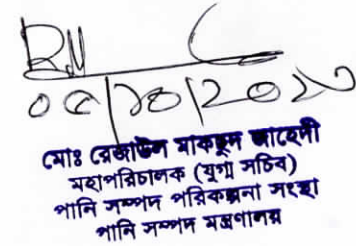 মোঃ রেজাউল মাকছুদ জাহেদী
মহাপরিচালক (যুগ্ম সচিব)
পানি সম্পদ পরিকল্পনা সংস্থা
পানি সম্পদ মন্ত্রণালয়